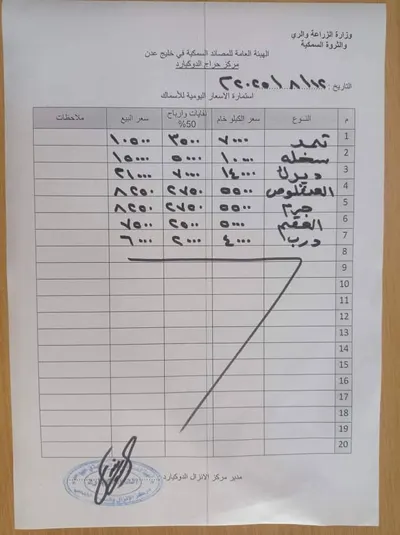 وزارة الزراعة والري
والثروة السمكية
الهيئة العامة للمصائد السمكية في خليج عدن
مركز حراج الدوكيارد
التاريخ : ١٢ / ٨ / ٢٠٢٥
استمارة الاسعار اليومية للأسماك
م النوع سعر الكيلو خام نفايات وارباح 50% سعر البيع ملاحظات
1 ثمد ٧٠٠٠ ٣٥٠٠ ١٠٥٠٠
2 سخله ١٠٠٠٠ ٥٠٠٠ ١٥٠٠٠
3 ديرك ١٤٠٠٠ ٧٠٠٠ ٢١٠٠٠
4 ٥٥٠٠ ٢٧٥٠ ٨٢٥٠
5 جرم ٥٥٠٠ ٢٧٥٠ ٨٢٥٠
6 ٥٠٠٠ ٢٥٠٠ ٧٥٠٠
7 درب ٤٠٠٠ ٢٠٠٠ ٦٠٠٠
8
9
10
11
12
13
14
15
16
17
18
19
20
مدير مركز الانزال الدوكيارد